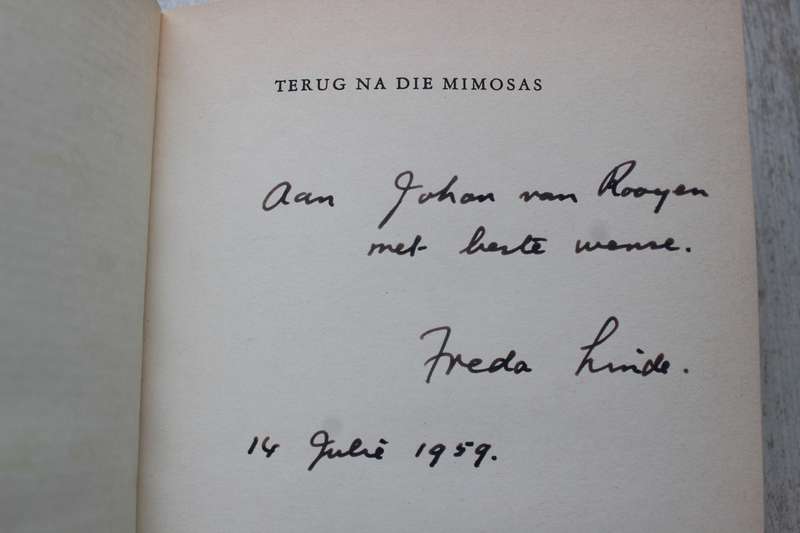 TERUG NA DIE MIMOSAS
Aan Johan van Rooyen
met beste wense.
Freda Linde.
14 Julie 1959.